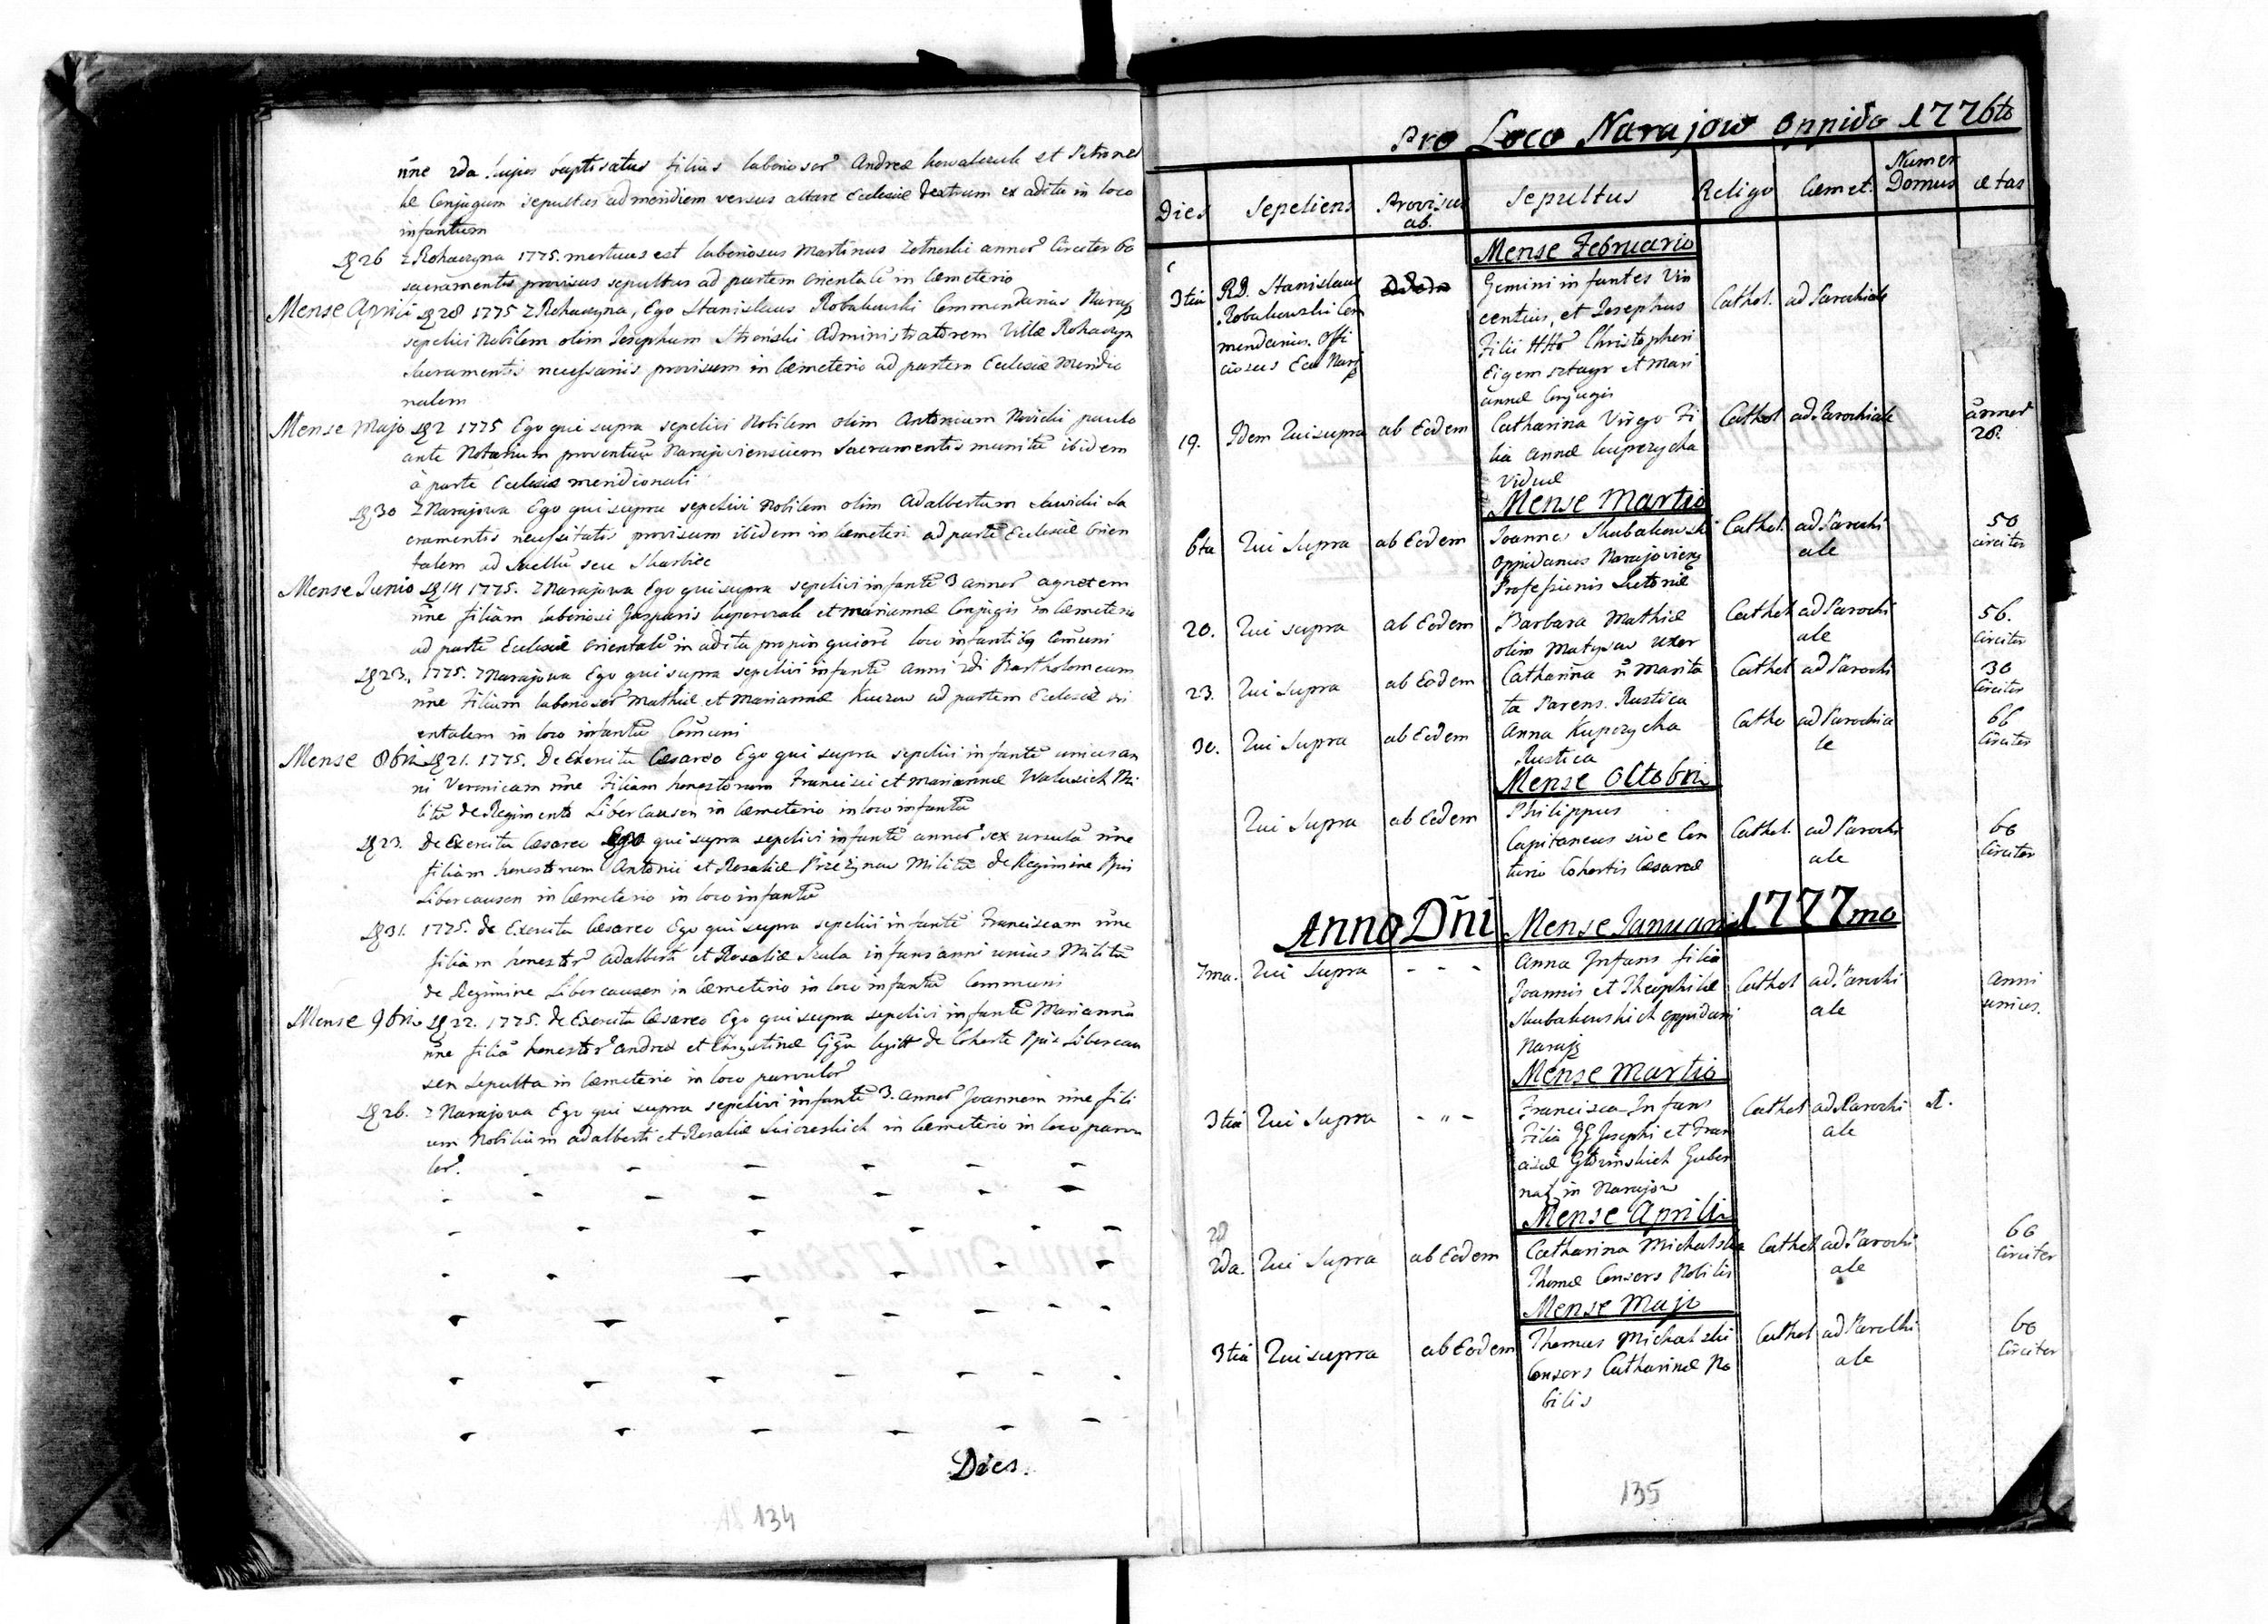 nne 2da hujus baptisatus filius laboriosor Andreæ Kowalczuk et Petronel
læ Conjugum sepultus ad meridiem versus altare Ecclesiæ dextrum ex aditu in loco
infantum
26 z Rohaczyna 1775. mortuus est laboriosus Martinus annor Circiter 60
sacramentis provisus sepultus ad partem orientale in Cæmeterio
Mense Aprili 28 1775 z Rohaczyna, Ego Stanislaus Robakowski Commendarius Naraj
sepelivi Nobilem olim Josephum Stroński Administratorem Villæ Rohaczyn
Sacramentis necessariis provisum in Cæmeterio ad partem Ecclesiæ Meridio
nalem
Mense Majo 2 1775 Ego qui supra sepelivi Nobilem olim Antonium Nowicki paulo
ante Notarium proventuu Narajoviensium Sacramentis munitu ibidem
à parte Ecclesiæ meridionali
30 z Narajowa Ego qui supra sepelivi Nobilem olim Adalbertum Sawicki Sa
cramentis necessitatis provisum ibidem in Cæmeteri ad parte Ecclesiæ Orien
talem ad Sacellu seu Skarbiec
Mense Junio 14 1775. z Narajowa Ego qui supra sepelivi infante 3 annor agnetem
nne filiam laboriosi Gasparis et Mariannæ Conjugis in Cæmeterio
ad parte Ecclesiæ Orientale in aditu propinquiore loco infantibq Comuni
23. 1775. z Narajowa Ego qui supra sepelivi infante anni 2di Bartholomeum
nne Filium laboriosor Mathiæ et Mariannæ ad partem Ecclesiæ ori
entalem in loco infantu Comuni
Mense 8bri 21. 1775. De Exercitu Cæsareo Ego qui supra sepelivi infante unius an
ni Veronicam nne Filiam honestorum Francisci et Mariannæ Mi
litu de Regimento Libercausen in Cæmeterio in loco infantu
23. de Exercitu Cæsareo Ego qui supra sepelivi infante annor sex ursula nne
filiam honestorum Antonii et Rosaliæ Militu de Regimine
Libercausen in Cæmeterio in loco infantu
31. 1775. de Exercitu Cæsareo Ego qui supra sepelivi infante Franciscam nne
filiam honestor Adalberti et Rosaliæ infans anni unius Militu
de Regimine Libercausen in Cæmeterio in loco infantu Communi
Mense 9bri 22. 1775. de Exercitu Cæsareo Ego qui supra sepelivi infante Marianna
nne filia honestor Andreæ et Chrystinæ legitt de Cohorte Libercau
sen sepulta in Cæmeterio in loco parvulor
26. z Narajowa Ego qui supra sepelivi infante 3. annor Joannem nne fili
um Nobilium Adalberti et Rosaliæ in Cæmeterio in loco parvu
lor.
Dies.
134
Pro Loco Narajow Oppido 1776to
Dies Sepeliens Provisus ab. Sepultus Religo Cæmet. Numer Domus Ætas
Mense Februario
3tia RD. Stanislaus Gemini infantes Vin Cathol. ad Parochiale
Robakowski Com centius, et Josephus
mendarius. Offi Filii Christopheri
ciosus Eccl Naraj
et Mari
annæ Conjugis
19. Idem Qui supra ab Eodem Catharina Virgo Fi Cathol ad Parochiale annor
lia Annæ Kuprzycha 20.
Viduæ
Mense Martio
6ta Qui Supra ab Eodem Joannes Skubakowski Cathol. ad Parochi 50
Oppidanus Narajoviens ale circiter
Professionis Sutoriæ
20. Qui supra ab Eodem Barbara Mathiæ Cathol ad Parochi 56.
olim Matysow uxor ale Circiter
23. Qui Supra ab Eodem Catharina n Marita Cathol ad Parochi 30
ta Parens. Rustica Circiter
30. Qui Supra ab Eodem Anna Kuprzycha Catho ad Parochia 66
Rustica le Circiter
Mense Octobri
Qui Supra ab Eodem Philippus
Capitaneus sive Cen Cathol. ad Parochi 60
turio Cohortis Cæsareæ ale Circiter
Anno Dñi Mense Januari 1777mo
7ma. Qui Supra - - - Anna Infans filia
Joannis et Theophilæ Cathol ad Parochi Anni
Skubakowskich oppidani ale unius.
Naraj
Mense Martio
3tia Qui Supra - " - Francisca Infans Cathol ad Parochi
Filia GG Josephi et Fran ale
ciscæ Guber
nat in Narajow
Mense Aprili
28
2da. Qui Supra ab Eodem Catharina Michalska Cathol ad Parochi 60
Thomæ Consors Nobilis ale Circiter
Mense Majo
3tia Qui supra ab Eodem Thomas Michalski Cathol ad Parochi 60
Consors Catharinæ No ale Circiter
bilis
135